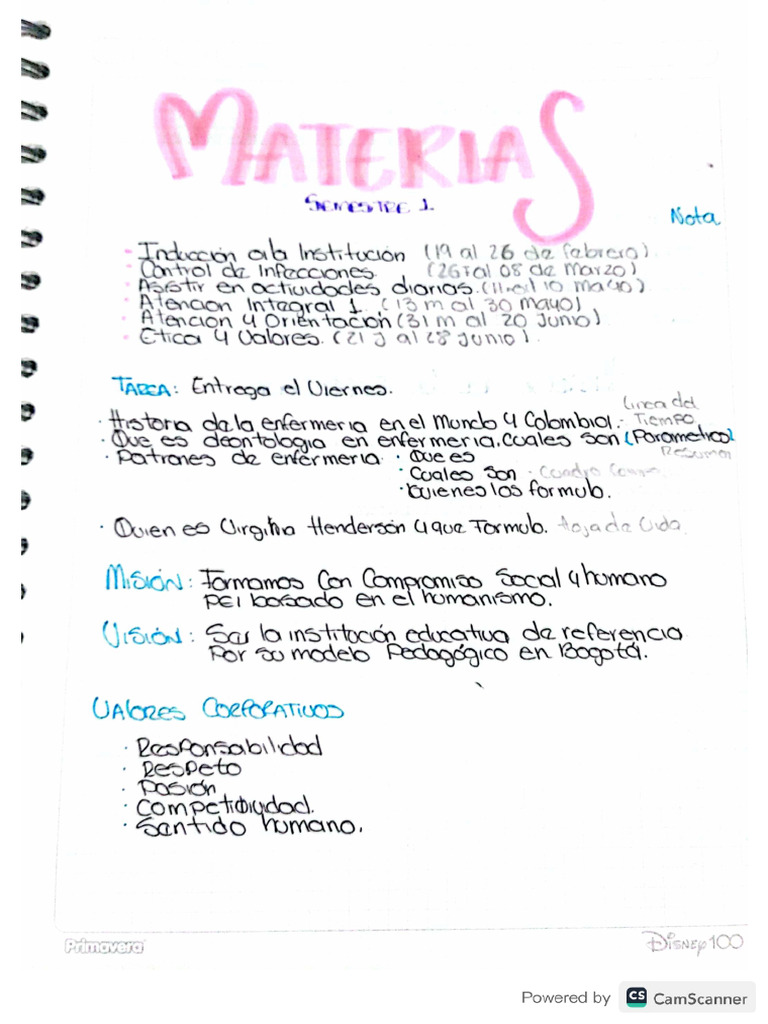 MATERIAS
SEMESTRE 1
Nota
- Inducción a la Institución (19 al 26 de febrero).
- Control de Infecciones. (26F al 08 de Marzo)
- Asistir en actividades diarias. (11 al 10 mayo)
- Atencion Integral 1. (13 m al 30 Mayo)
- Atencion y Orientación (31 m al 20 Junio)
- Etica y Valores. (21 J al 28 Junio).
TAREA: Entrega el Viernes.
· Historia de la enfermeria en el Mundo y Colombia. - Linea del Tiempo
· Que es deontologia en enfermeria. Cuales son (Parametico)
Resumen
· Patrones de enfermeria · Que es
· Cuales son - Cuadro
· Quienes los formulo.
· Quien es Virginia Henderson y que Formulo. Hoja de Vida.
MISIÓN: Formamos Con Compromiso Social y humano
PEI basado en el humanismo.
VISIÓN: Ser la institución educativa de referencia
Por su modelo Pedagógico en Bogotá.
VALORES CORPORATIVOS
· Responsabilidad
· Respeto
· Pasión
· Competitividad.
· Sentido humano.
Primavera
Disney 100
Powered by CS CamScanner